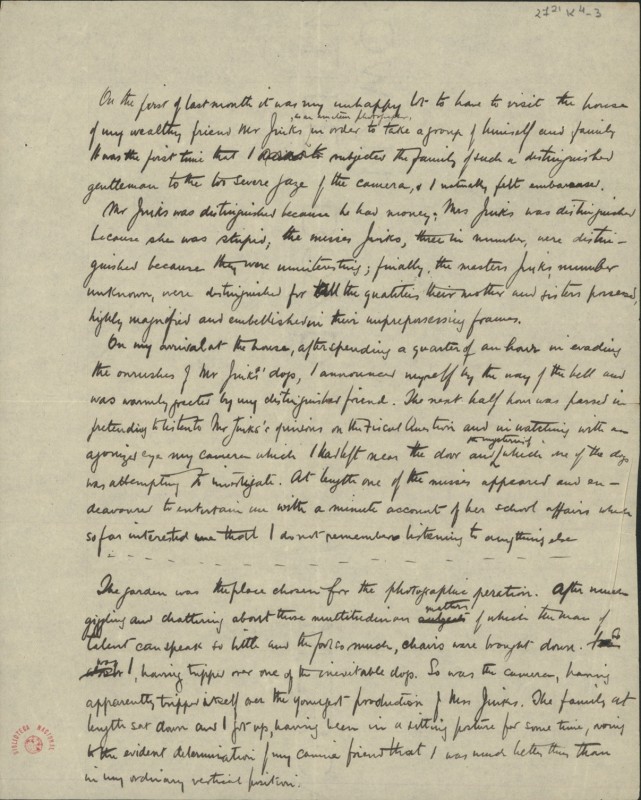 27 21 K 4-3
On the first of last month it was my unhappy lot to have to visit the house
, as an amateur photographer,
of my wealthy friend Mr Jinks, in order to take a group of himself and family
It was the first time that I subjected the family of such a distinguished
gentleman to the too severe gaze of the camera, & I naturally felt embarassed.
Mr Jinks was distinguished because he had money; Mrs Jinks was distinguished
because she was stupid; the misses Jinks, three in number, were distin-
guished because they were uninteresting; finally, the masters Jinks, number
unknown, were distinguished for all the qualities their mother and sisters possessed,
highly magnified and embellished in their unprepossessing frames.
On my arrival at the house, after spending a quarter of an hour in evading
the onrushes of Mr Jinks' dogs, I announced myself by the way of the bell and
was warmly greeted by my distinguished friend. The next half hour was passed in
pretending to listen to Mr Jinks's opinions on the Fiscal Question and in watching with an
agonized eye my camera which I had left near the door and the mysteries of which one of the dogs
was attempting to investigate. At length one of the misses appeared and en-
deavoured to entertain me with a minute account of her school affairs which
so far interested me that I do not remember listening to anything else
The garden was the place chosen for the photographic operation. After much
giggling and chattering about those multitudinous matters of which the man of
talent can speak so little and the fool so much, chairs were brought down. So
was I, having tripped over one of the inevitable dogs. So was the camera, having
apparently tripped itself over the youngest production of Mrs Jinks. The family at
length sat down and I got up, having been in a sitting posture for some time, owing
to the evident determination of my canine friend that I was much better thus than
in my ordinary vertical position.
BIBLIOTECA NACIONAL